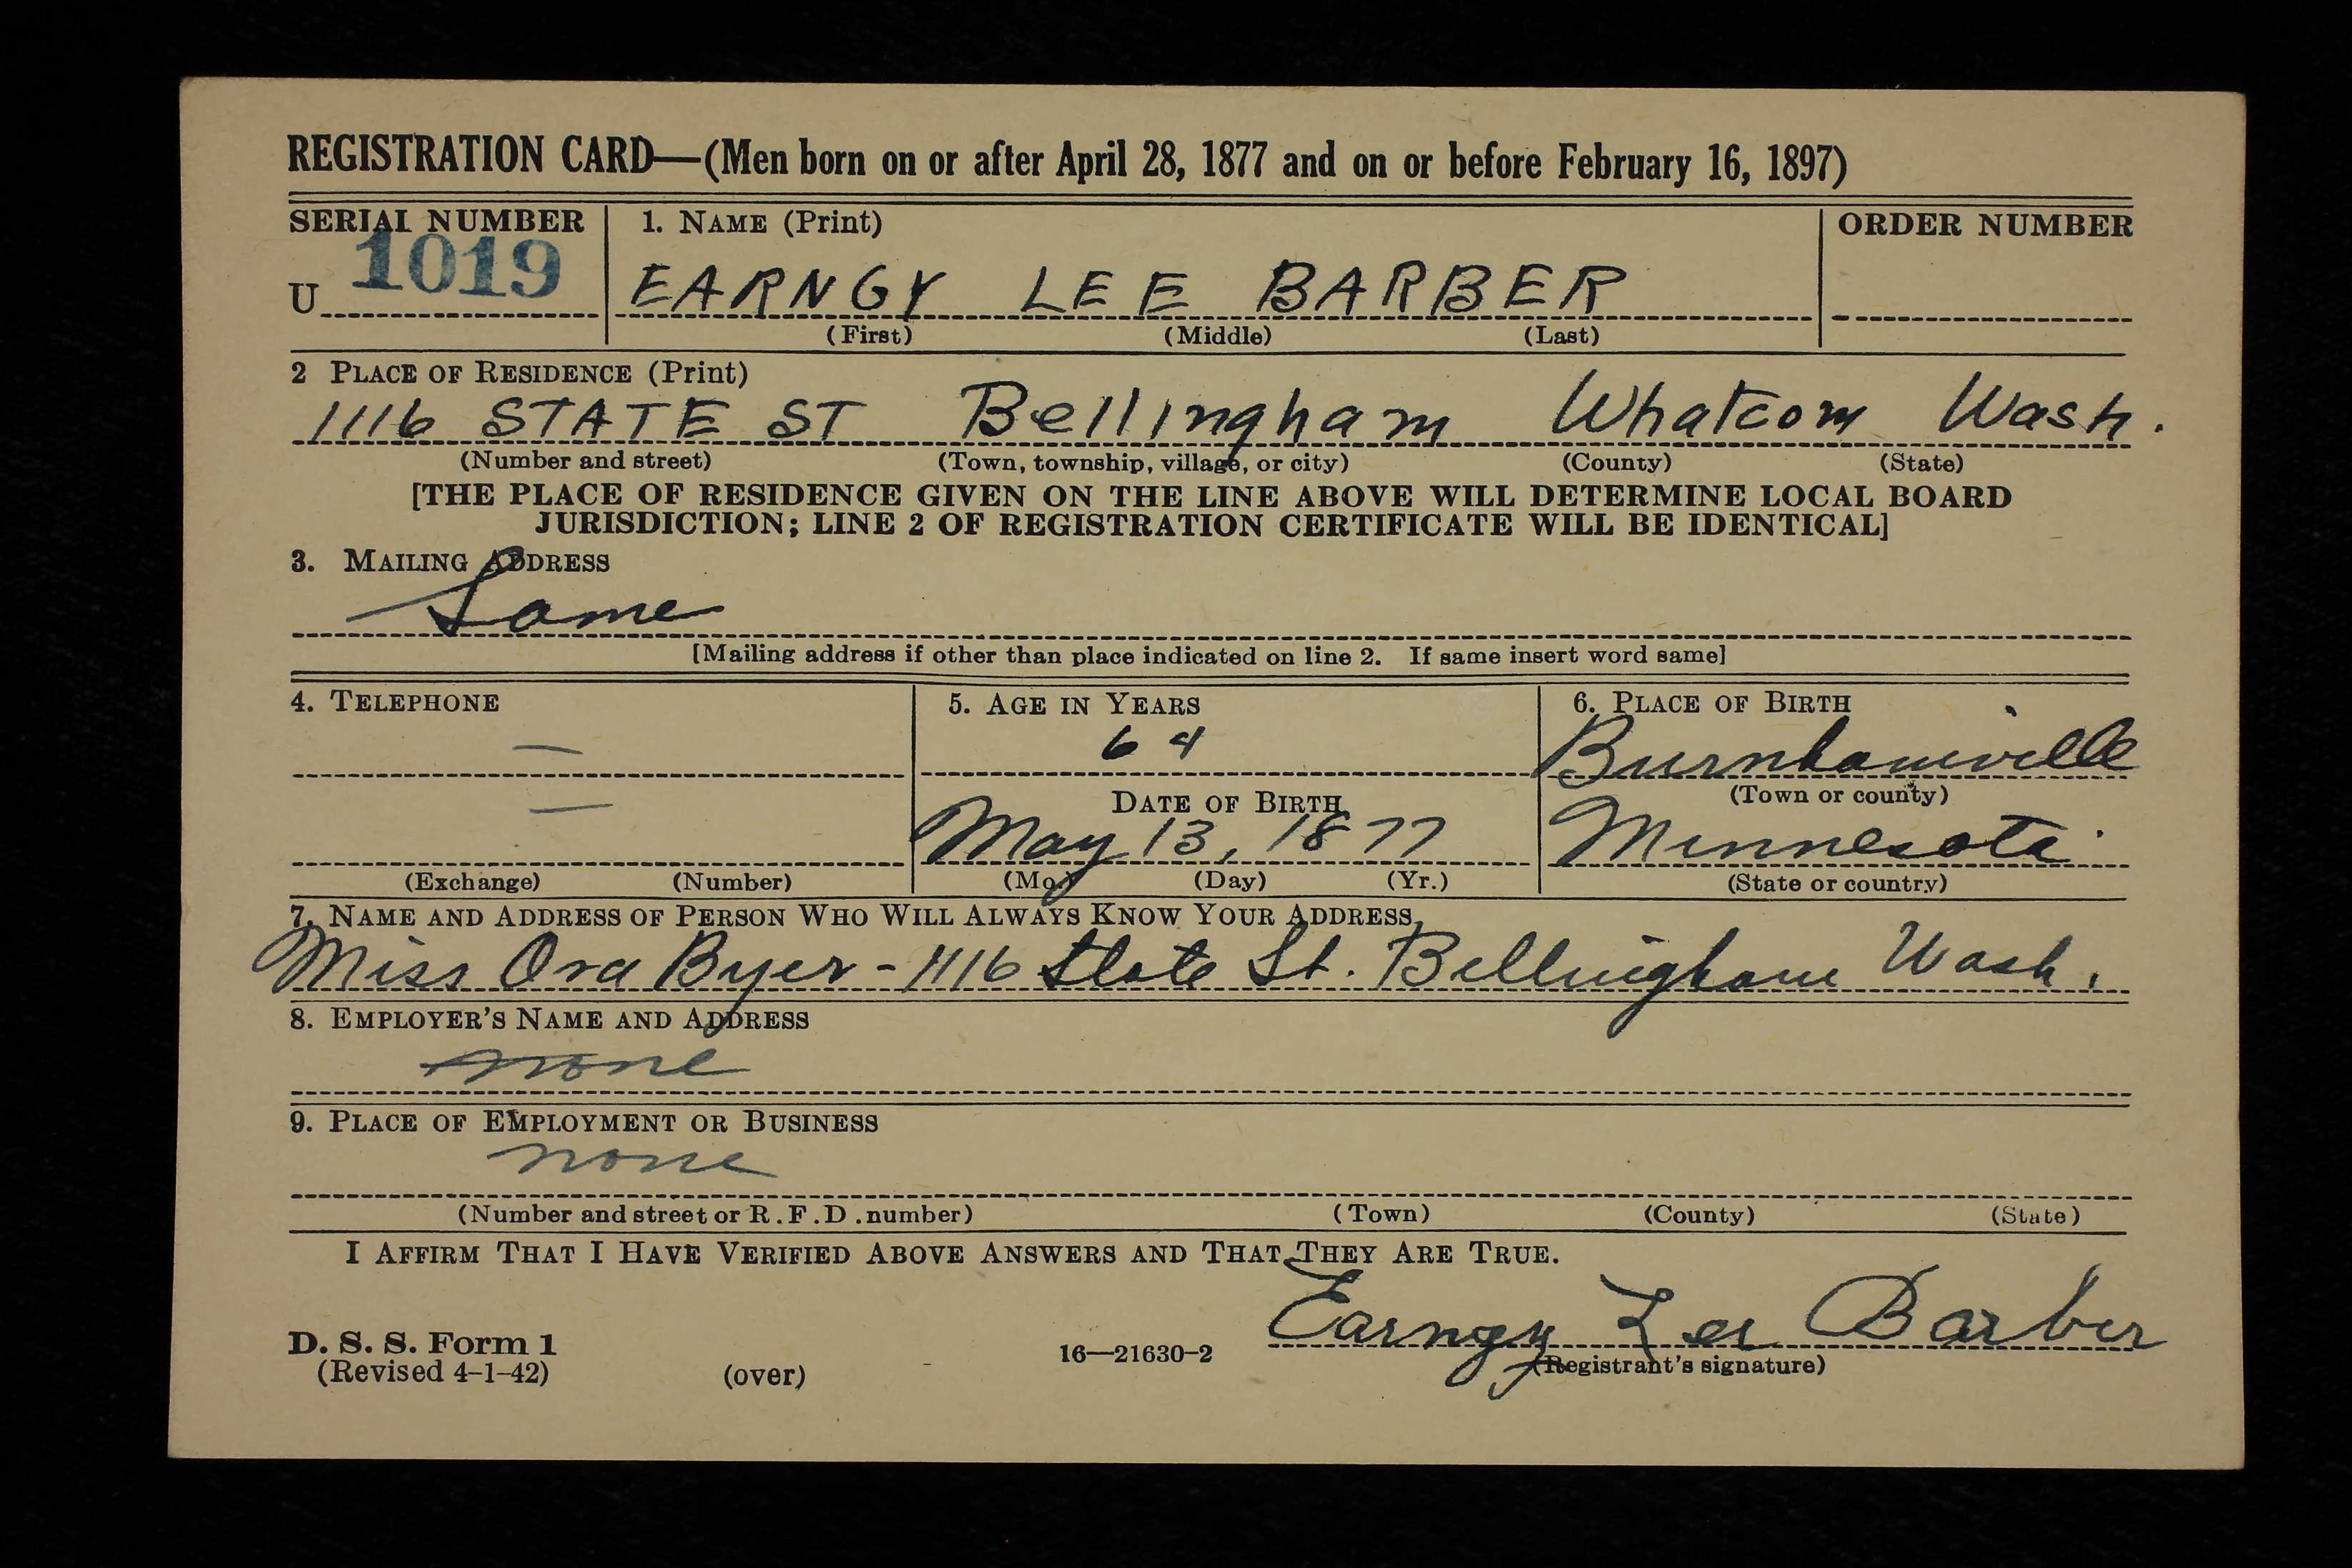 REGISTRATION CARD—(Men born on or after April 28, 1877 and on or before February 16, 1897)
SERIAL NUMBER 1. NAME (Print) ORDER NUMBER
U 1019 EARNGY LEE BARBER
(First) (Middle) (Last)
2 PLACE OF RESIDENCE (Print)
1116 STATE ST Bellingham Whatcom Wash.
(Number and street) (Town, township, village, or city) (County) (State)
[THE PLACE OF RESIDENCE GIVEN ON THE LINE ABOVE WILL DETERMINE LOCAL BOARD
JURISDICTION; LINE 2 OF REGISTRATION CERTIFICATE WILL BE IDENTICAL]
3. MAILING ADDRESS
Same
[Mailing address if other than place indicated on line 2. If same insert word same]
4. TELEPHONE 5. AGE IN YEARS 6. PLACE OF BIRTH
— 64 Burnhamville
DATE OF BIRTH (Town or county)
— May 13, 1877 Minnesota
(Exchange) (Number) (Mo.) (Day) (Yr.) (State or country)
7. NAME AND ADDRESS OF PERSON WHO WILL ALWAYS KNOW YOUR ADDRESS
Miss Ora Byer - 1116 State St. Bellingham Wash.
8. EMPLOYER'S NAME AND ADDRESS
none
9. PLACE OF EMPLOYMENT OR BUSINESS
none
(Number and street or R.F.D. number) (Town) (County) (State)
I AFFIRM THAT I HAVE VERIFIED ABOVE ANSWERS AND THAT THEY ARE TRUE.
Earngy Lee Barber
D. S. S. Form 1 16—21630-2 (Registrant's signature)
(Revised 4-1-42) (over)